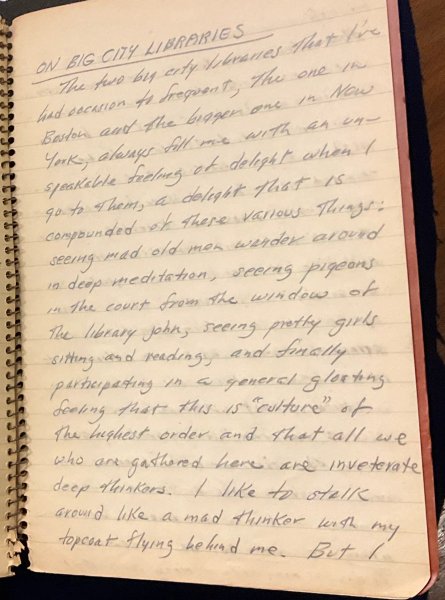 ON BIG CITY LIBRARIES
The two big city libraries that I've
had occasion to frequent, the one in
Boston and the bigger one in New
York, always fill me with an un-
speakable feeling of delight when I
go to them, a delight that is
compounded of these various things:
seeing mad old men wander around
in deep meditation, seeing pigeons
in the court from the window of
the library john, seeing pretty girls
sitting and reading, and finally
participating in a general gloating
feeling that this is "culture" of
the highest order and that all we
who are gathered here are inveterate
deep thinkers. I like to stalk
around like a mad thinker with my
topcoat flying behind me. But I